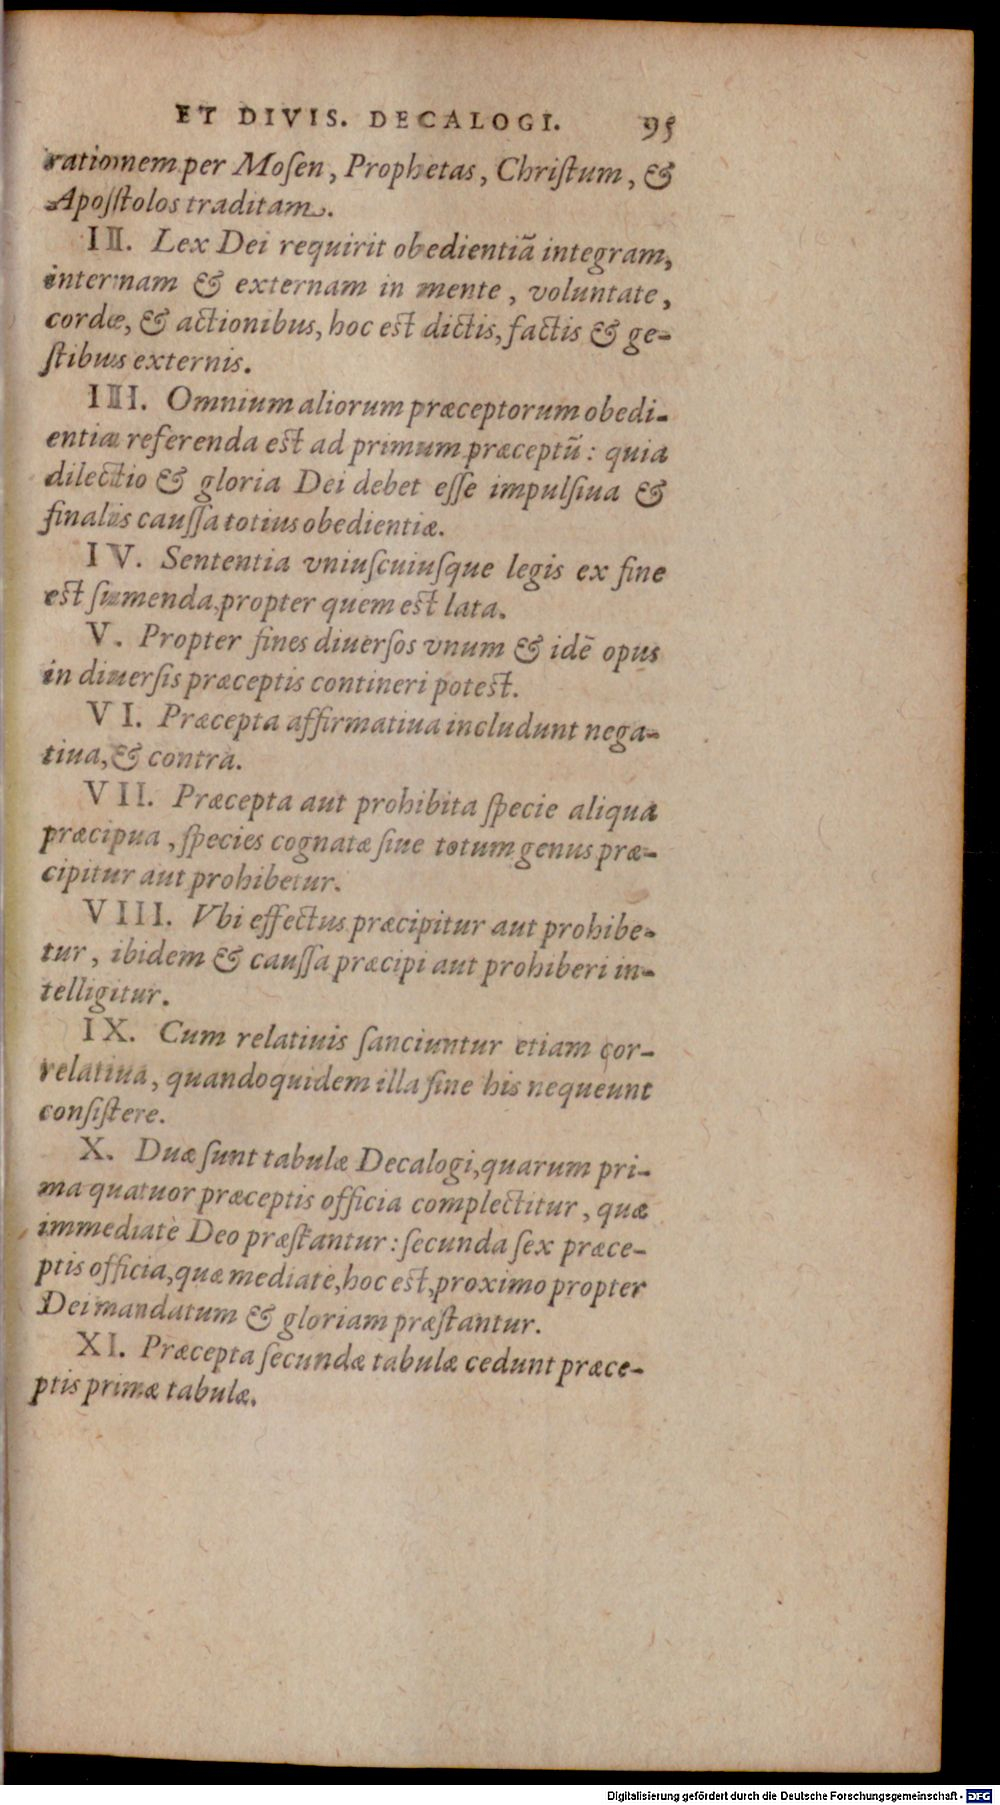 ET DIVIS. DECALOGI. 95
rationem per Moſen, Prophetas, Chriſtum, &
Apoſtolos traditam.
II. Lex Dei requirit obedientiã integram,
internam & externam in mente, voluntate,
corde, & actionibus, hoc est dictis, factis & ge-
ſtibus externis.
III. Omnium aliorum præceptorum obedi-
entia referenda est ad primum præceptũ: quia
dilectio & gloria Dei debet eſſe impulſiua &
finalis cauſſa totius obedientiæ.
IV. Sententia vniuſcuiuſque legis ex fine
est ſumenda, propter quem est lata.
V. Propter fines diuerſos vnum & idẽ opus
in diuerſis præceptis contineri potest.
VI. Præcepta affirmatiua includunt nega-
tiua, & contrà.
VII. Præcepta aut prohibita ſpecie aliqua
præcipua, ſpecies cognatæ ſiue totum genus præ-
cipitur aut prohibetur.
VIII. Vbi effectus præcipitur aut prohibe-
tur, ibidem & cauſſa præcipi aut prohiberi in-
telligitur.
IX. Cum relatiuis ſanciuntur etiam cor-
relatiua, quandoquidem illa ſine his nequeunt
conſiſtere.
X. Duæ ſunt tabulæ Decalogi, quarum pri-
ma quatuor præceptis officia complectitur, quæ
immediatè Deo præſtantur: ſecunda ſex præce-
ptis officia, quæ mediatè, hoc est, proximo propter
Dei mandatum & gloriam præſtantur.
XI. Præcepta ſecundæ tabulæ cedunt præce-
ptis primæ tabulæ.
Digitalisierung gefördert durch die Deutsche Forschungsgemeinschaft - DFG